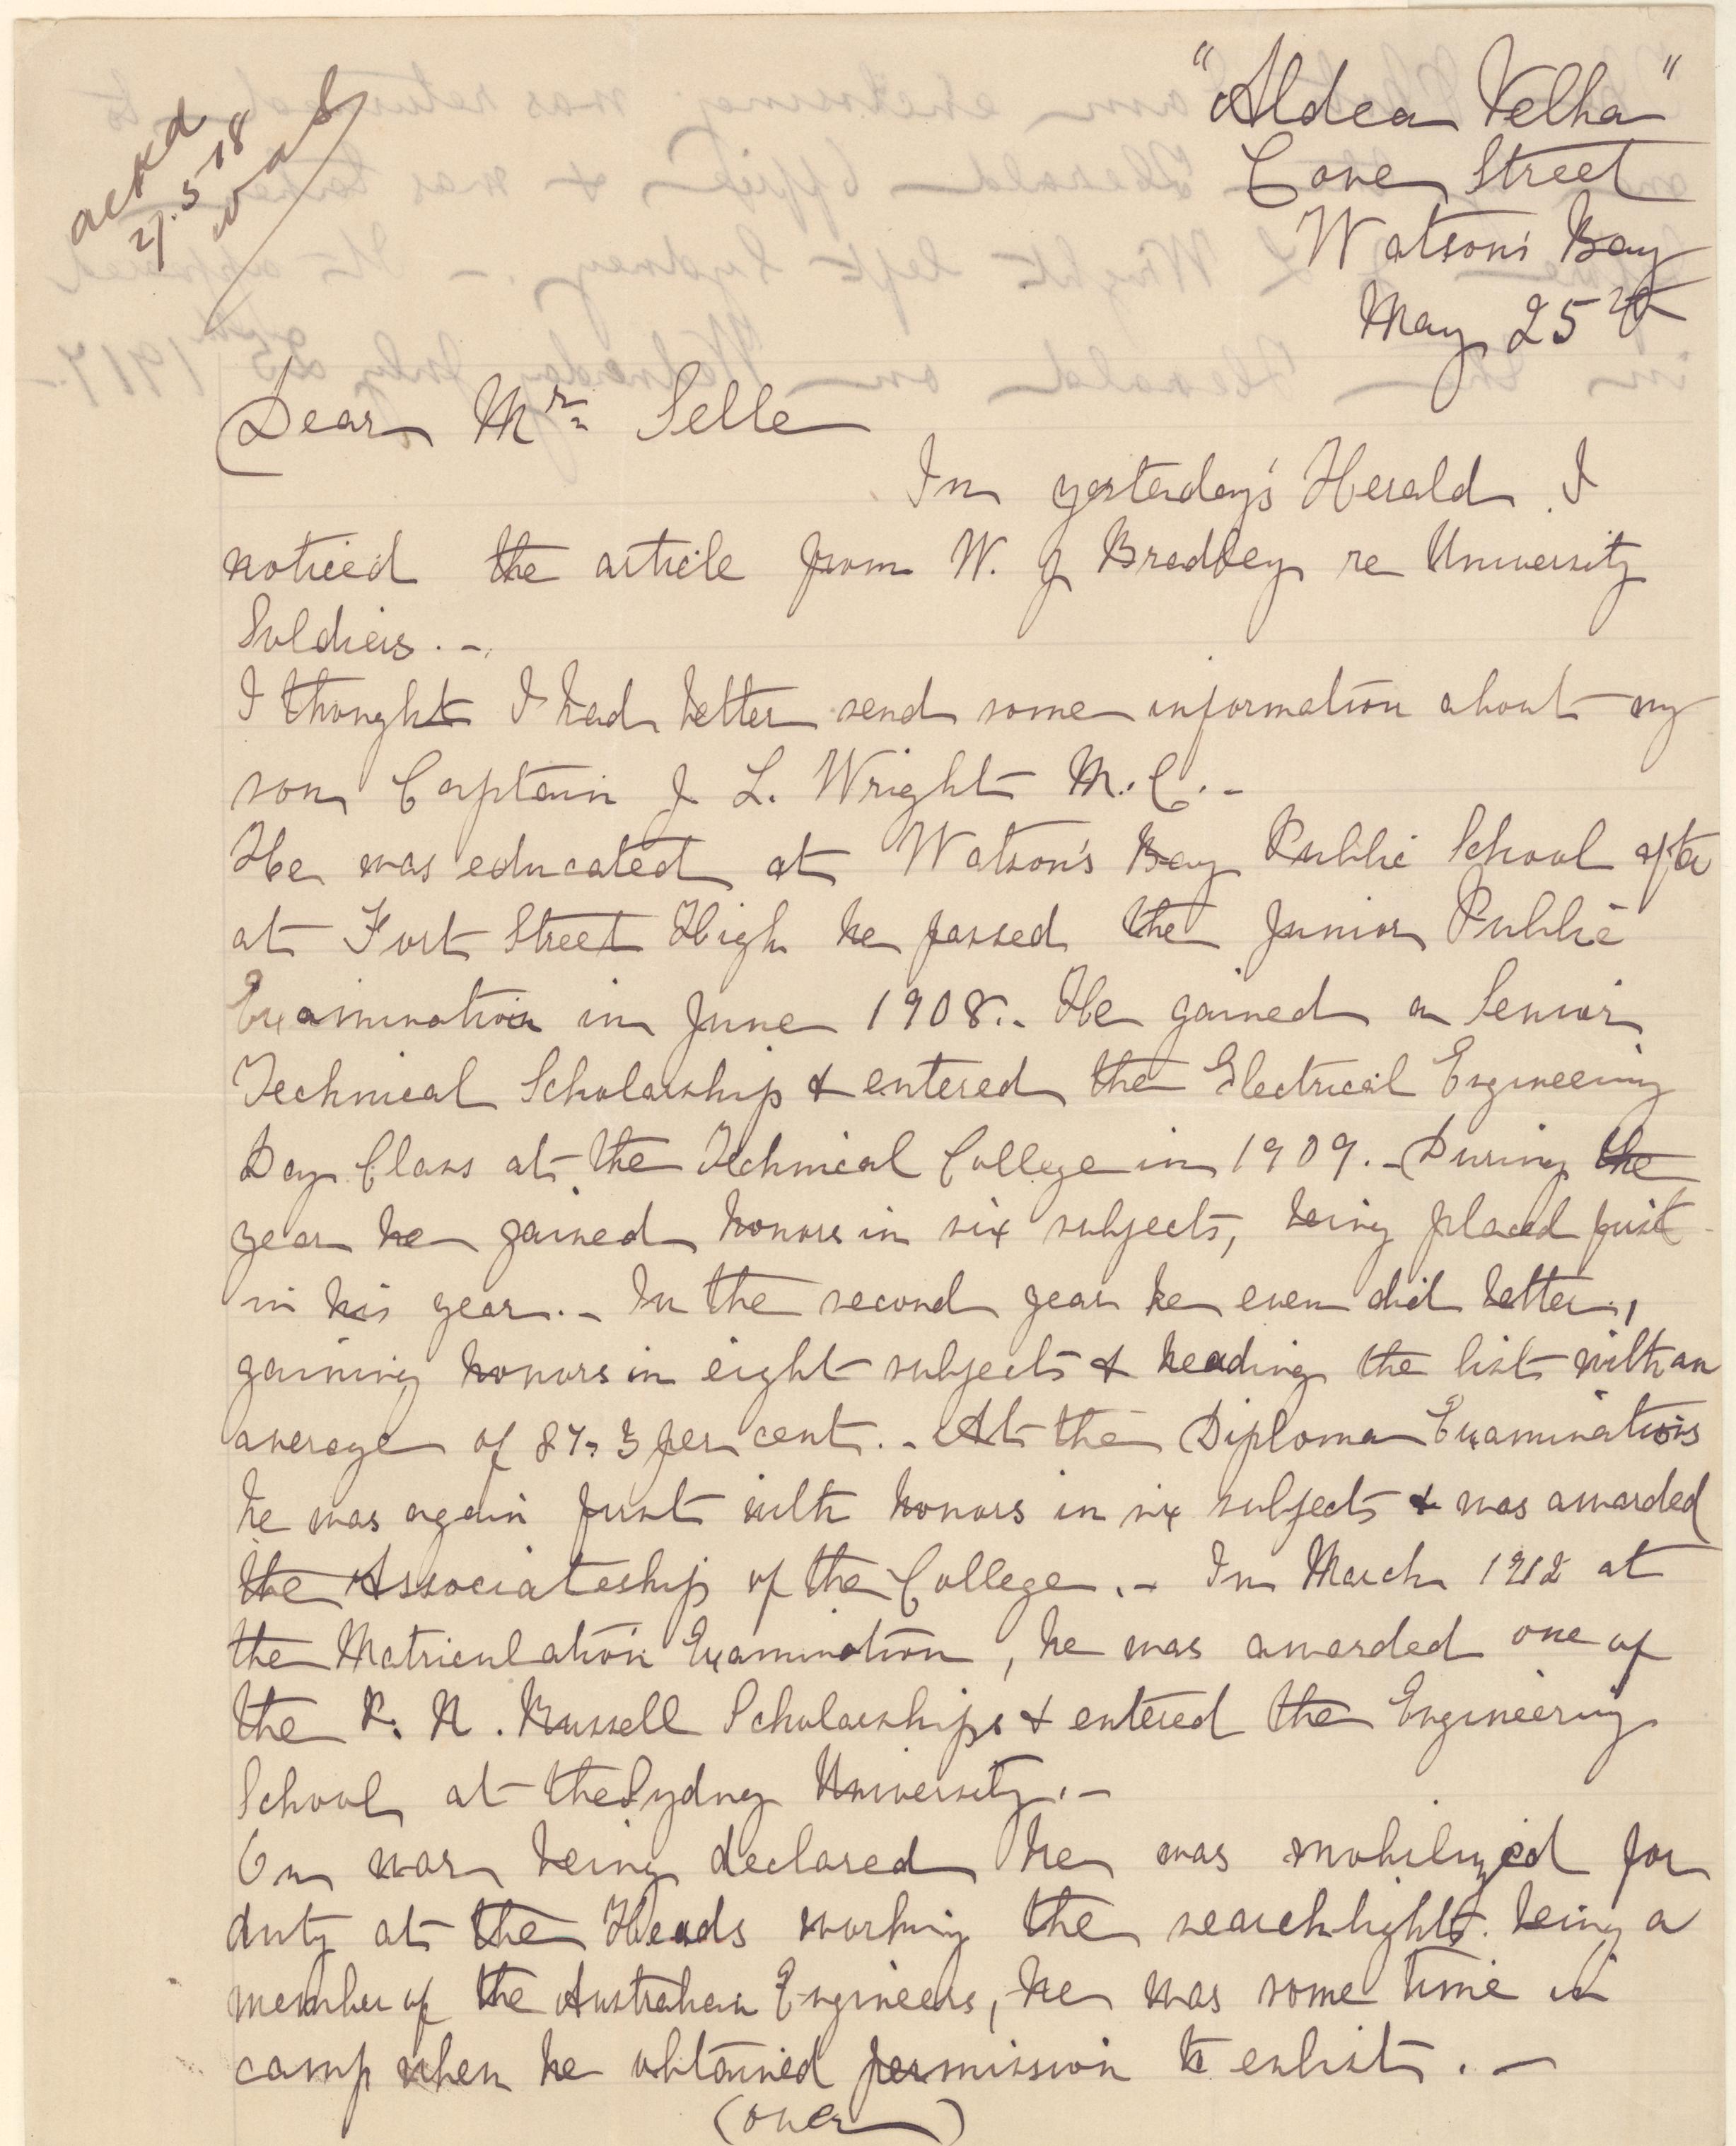 ackd
27.5.18
"Aldea Velha"
Cove Street
Watson's Bay
May 25th
Dear Mr. Selle
In yesterday's Herald I
noticed the article from W. J Bradley re University
Soldiers. -
I thought I had better send some information about my
son Captain J L. Wright M.C. -
He was educated at Watson's Bay Public School after
at Fort Street High he passed the Junior Public
Examination in June 1908. - He gained a Senior
Technical Scholarship & entered the Electrical Engineering
Day Class at the Technical College in 1909. - During the
year he gained honors in six subjects, being placed first
in his year. - In the second year he even did better,
gaining honors in eight subjects & heading the list with an
average of 87.3 per cent. - At the Diploma Examinations
he was again first with honors in six subjects & was awarded
the Associateship of the College. - In March 1912 at
the Matriculation Examination, he was awarded one of
the P. N. Russell Scholarships & entered the Engineering
School at the Sydney University. -
On war being declared he was mobilized for
duty at the Heads working the searchlights. being a
member of the Australian Engineers, he was some time in
camp when he obtained permission to enlist. -
(over)